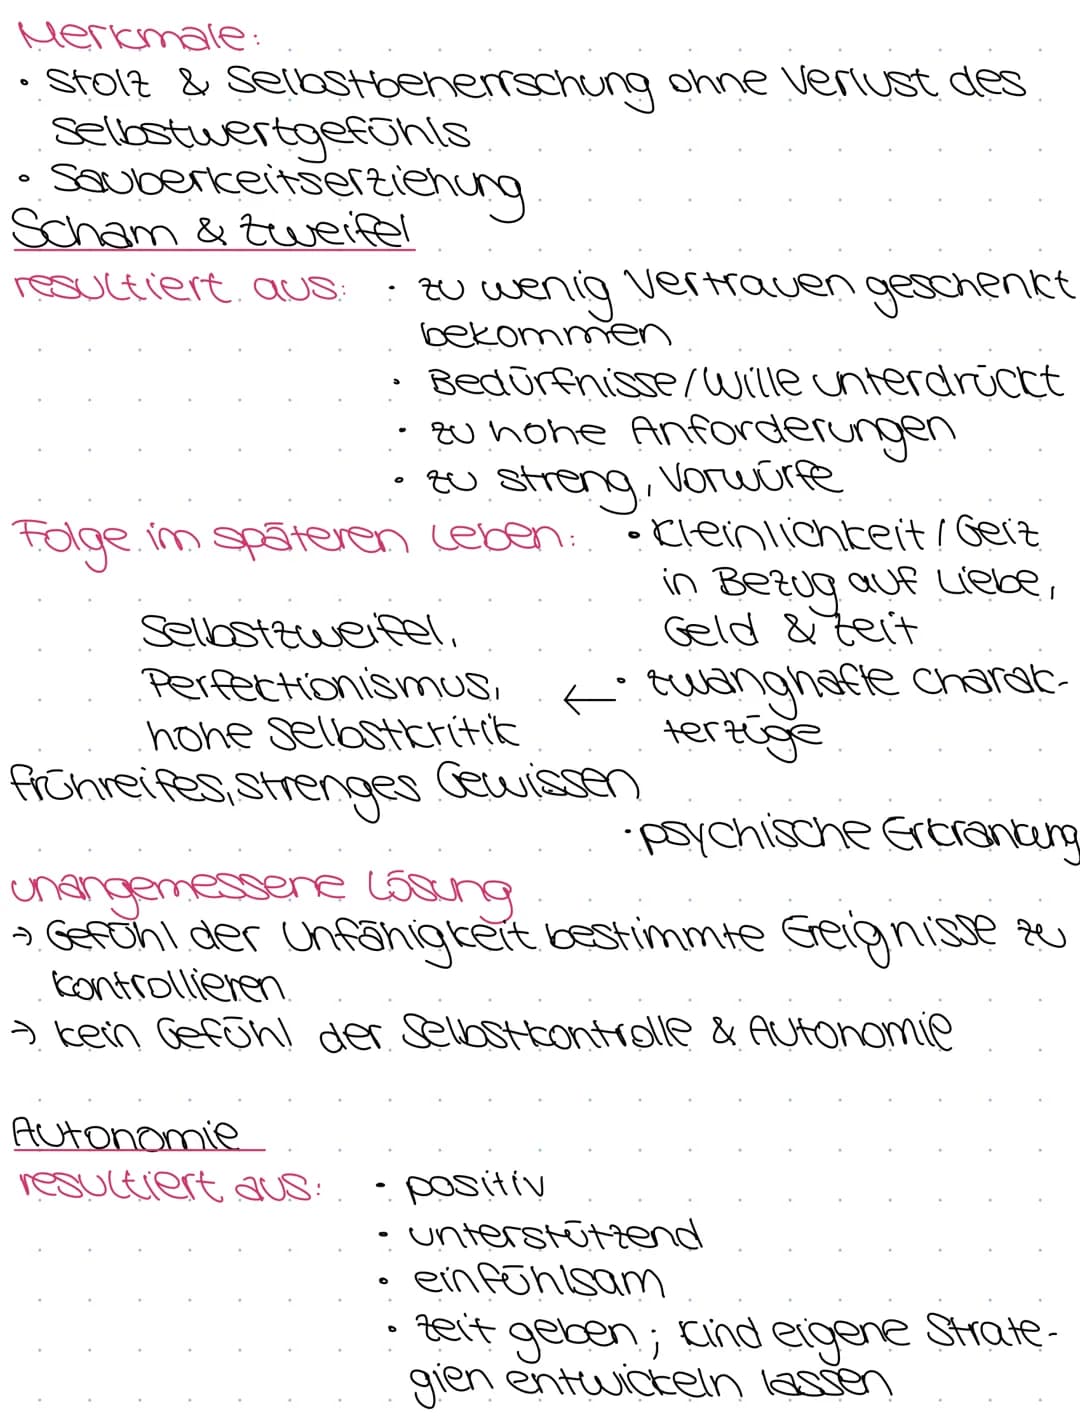 Merkmale:
• Stolz & Selbstbeherrschung ohne Verlust des
Selbstwertgefühls
• Sauberkeitserziehung
Scham & Zweifel
resultiert aus: • zu wenig Vertrauen geschenkt
bekommen
• Bedürfnisse/Wille unterdrückt
• zu hohe Anforderungen
• zu streng, Vorwürfe
Folge im späteren Leben: • Kleinlichkeit/Geiz
in Bezug auf Liebe,
Geld & Zeit
• zwanghafte Charak-
terzüge
← Selbstzweifel,
Perfectionismus,
hohe Selbstkritik
frühreifes, strenges Gewissen
• psychische Erkrankung
unangemessene Lösung
→ Gefühl der Unfähigkeit bestimmte Ereignisse zu
kontrollieren
→ kein Gefühl der Selbstkontrolle & Autonomie
Autonomie
resultiert aus: • positiv
• unterstützend
• einfühlsam
• Zeit geben; Kind eigene Strate-
gien entwickeln lassen